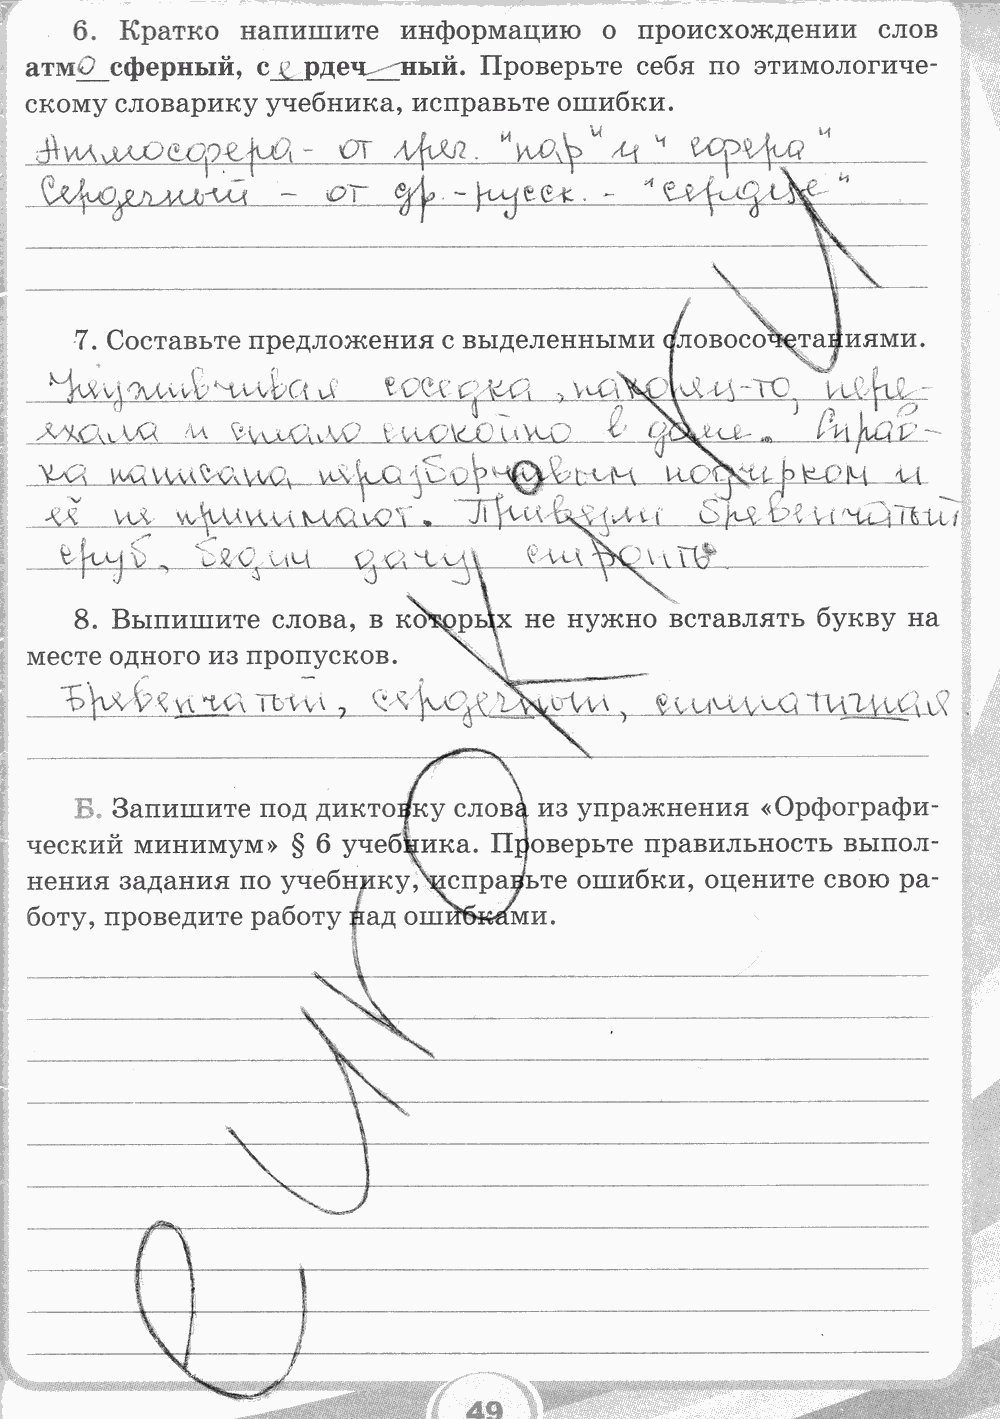 6. Кратко напишите информацию о происхождении слов
атмо_сферный, се_рдеч__ный. Проверьте себя по этимологиче-
скому словарику учебника, исправьте ошибки.
Атмосфера - от греч. "пар" и "сфера"
Сердечный - от др.-русск. - "сердце"
7. Составьте предложения с выделенными словосочетаниями.
Неуживчивая соседка, наконец-то, пере-
ехала и стало спокойно в доме. Справ-
ка написана неразборчивым подчирком и
её не принимают. Привезли бревенчатый
сруб, будем дачу строить.
8. Выпишите слова, в которых не нужно вставлять букву на
месте одного из пропусков.
Бревенчатый, сердечный, симпатичная.
Б. Запишите под диктовку слова из упражнения «Орфографи-
ческий минимум» § 6 учебника. Проверьте правильность выпол-
нения задания по учебнику, исправьте ошибки, оцените свою ра-
боту, проведите работу над ошибками.
49